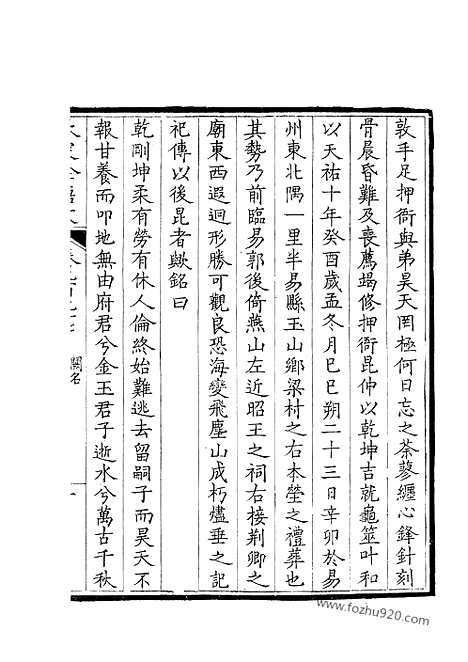 敦手足押衙與弟昊天罔極何日忘之荼蓼纏心鋒針刻
骨晨昏難及喪薦竭修押衙昆仲以乾坤吉就龜筮叶和
以天祐十年癸酉歲孟冬月己巳朔二十三日辛卯於易
州東北隅一里半易縣玉山鄉梁村之右本塋之禮葬也
其勢乃前臨易郭後倚燕山左近昭王之祠右接荆卿之
廟東西遐迴形勝可觀良恐海變飛塵山成朽燼垂之記
祀傳以後昆者歟銘曰
乾剛坤柔有勞有休人倫終始難逃去留嗣子而昊天不
報甘養而叩地無由府君兮金玉君子逝水兮萬古千秋
闕名
一
www.fozhu920.com